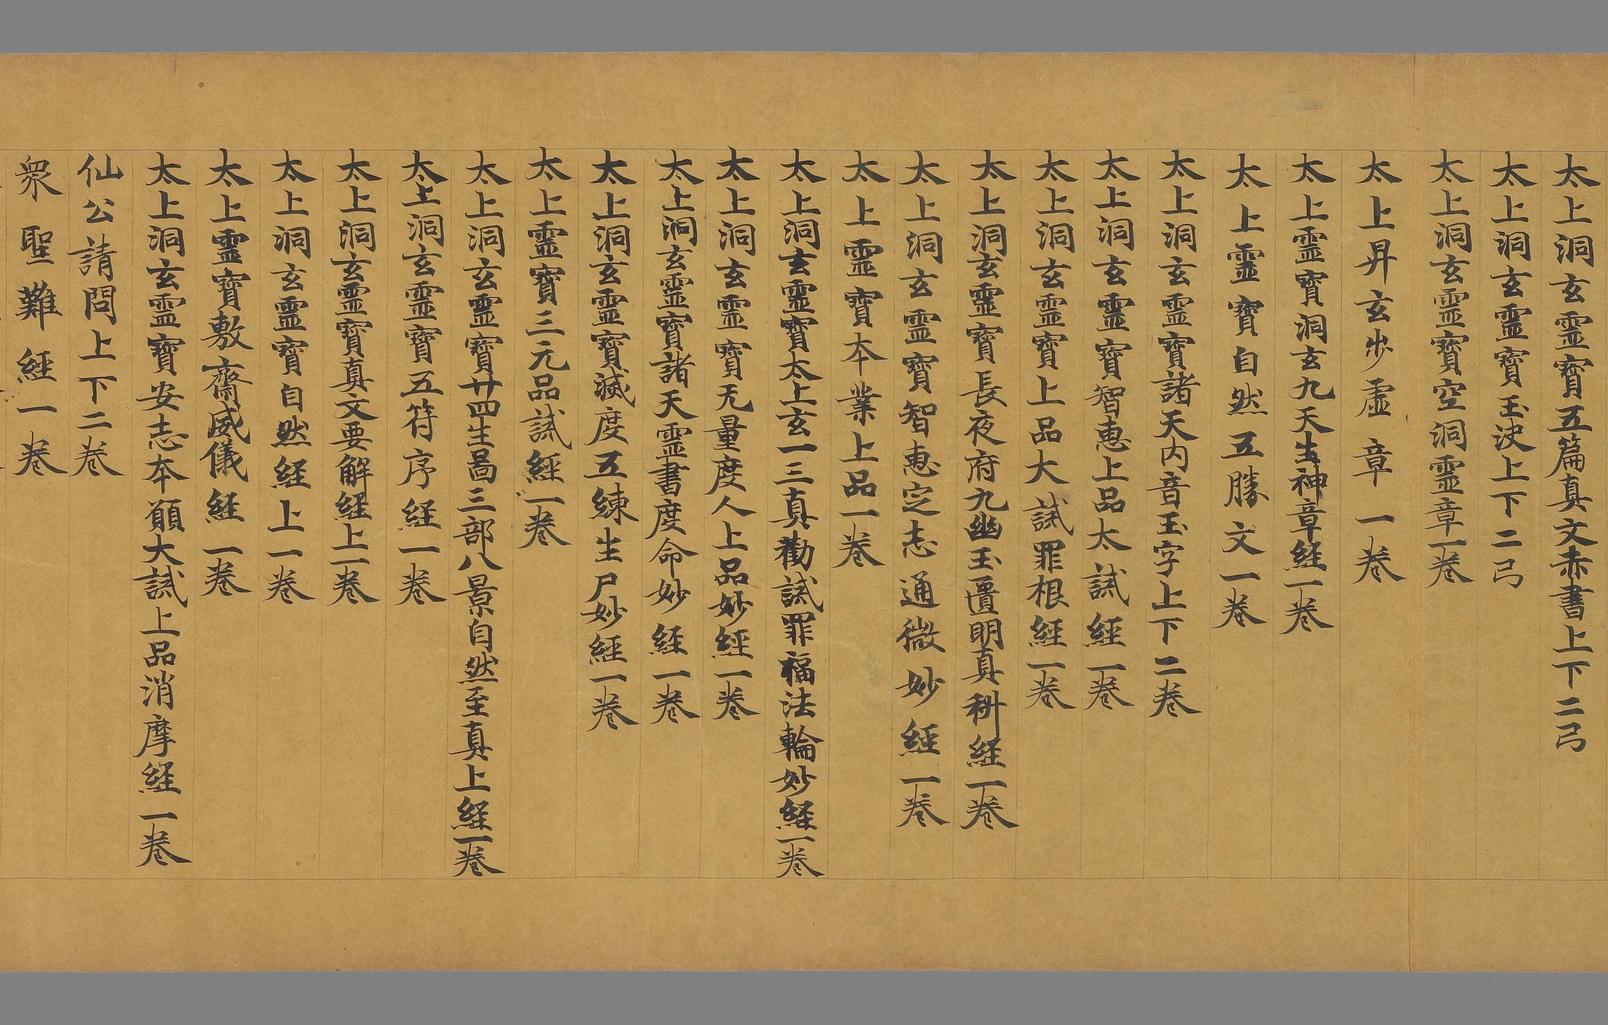 太上洞玄靈寶五篇真文赤書上下二弓
太上洞玄靈寶玉訣上下二弓
太上洞玄靈寶空洞靈章一卷
太上昇玄步虛章一卷
太上靈寶洞玄九天生神章經一卷
太上靈寶自然五勝文一卷
太上洞玄靈寶諸天内音玉字上下二卷
太上洞玄靈寶智惠上品大誡經一卷
太上洞玄靈寶上品大誡罪根經一卷
太上洞玄靈寶長夜府九幽玉匱明真科經一卷
太上洞玄靈寶智惠定志通微妙經一卷
太上靈寶本業上品一卷
太上洞玄靈寶太上玄一三真勸誡罪福法輪妙經一卷
太上洞玄靈寶无量度人上品妙經一卷
太上洞玄靈寶諸天靈書度命妙經一卷
太上洞玄靈寶滅度五練生尸妙經一卷
太上靈寶三元品誡經一卷
太上洞玄靈寶廿四生啚三部八景自然至真上經一卷
太上洞玄靈寶五符序經一卷
太上洞玄靈寶真文要解經上一卷
太上洞玄靈寶自然經上一卷
太上靈寶敷齋威儀經一卷
太上洞玄靈寶安志本願大誡上品消摩經一卷
仙公請問上下二卷
衆聖難經一卷